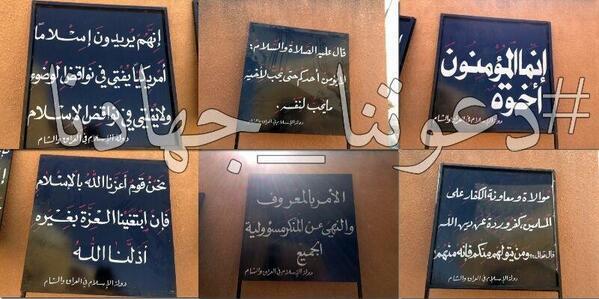 إنما المؤمنون
أخوة
دولة الإسلام في العراق والشام
قال عليه الصلاة والسلام:
لا يؤمن أحدكم حتى يحب لأخيه
ما يحب لنفسه.
دولة الإسلام في العراق والشام
إنهم يريدون إسلاما
أمريكيا يفتي في نواقض الوضوء
ولا يفتي في نواقض الإسلام
دولة الإسلام في العراق والشام
#دعوتنا_جهادنا
موالاة ومعاونة الكفار على
المسلمين كفر وردة عن دين الله
قال تعالى: ومن يتولهم منكم فإنه منهم
دولة الإسلام في العراق والشام
الأمر بالمعروف
والنهي عن المنكر مسؤولية
الجميع
دولة الإسلام في العراق والشام
نحن قوم أعزنا الله بالإسلام
فإن ابتغينا العزة بغيره
أذلنا الله
دولة الإسلام في العراق والشام